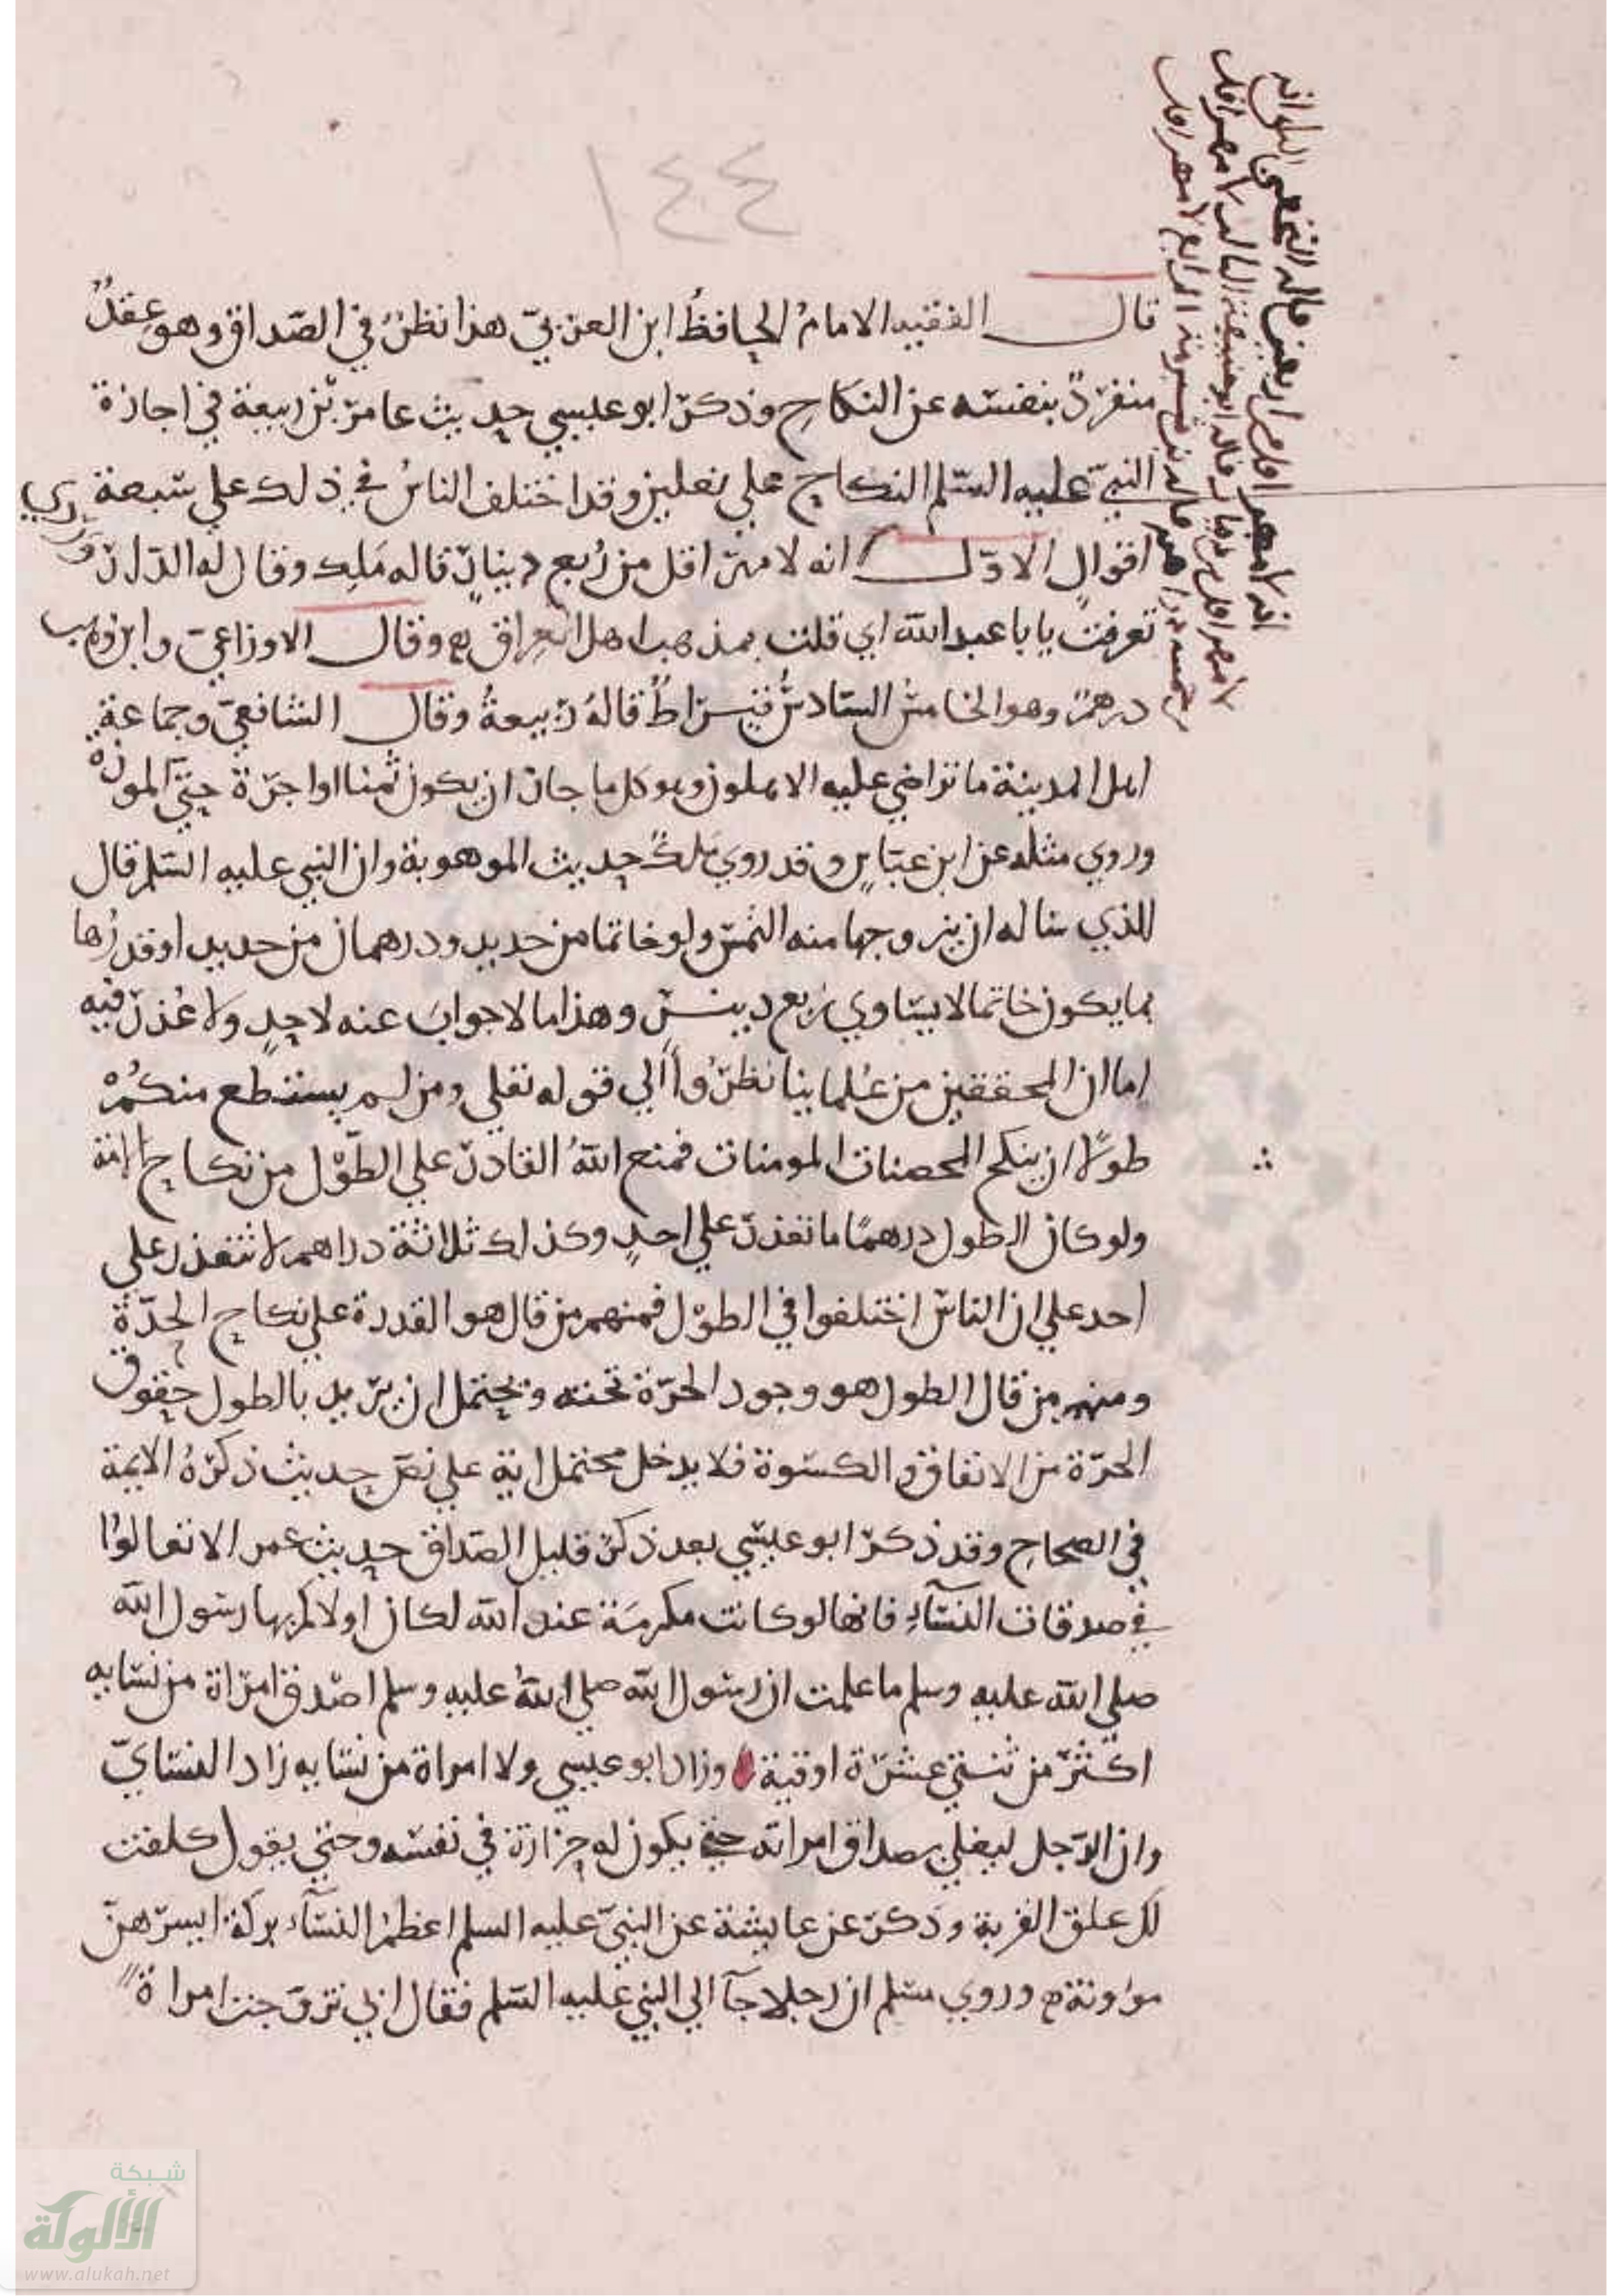 ١٤٤
قال الفقيه الامام الحافظ ابن العربي هذا نظر في الصداق وهو عقد
منفرد بنفسه عن النكاح وذكر ابو عيسي حديث عامر بن ربيعة في اجازة
النبي عليه السلم النكاح علي نعلين وقد اختلف الناس في ذلك علي سبعة
اقوال الاول انه لا مهر اقل من ربع دينار قاله ملك وقال له الدراوردي
تعرقت يابا عبد الله اي قلت بمذهب اهل العراق وقال الاوزاعي وابن وهب
درهم وهو الخامس السادس قيراط قاله ربيعة وقال الشافعي وجماعة
اهل المدينة ما تراضي عليه الاهلون وهو كل ما جاز ان يكون ثمنا او اجرة
وروي مثله عن ابن عباس وقد روي ملك حديث الموهوبة وان النبي عليه السلم قال
للذي ساله ان يزوجها منه التمس ولو خاتما من حديد ودرهمان من حديد او قدرها
بما يكون خاتما لا يساوي ربع دينر وهذا ما لا جواب عنه لاحد ولا عذر فيه
اما ان المحققين من علماينا نظروا الي قوله تعلي ومن لم يستطع منكم
طولا ان ينكح المحصنات المومنات فمنع الله القادر علي الطول من نكاح الامة
ولو كان الطول درهما ما تعذر علي احد وكذلك ثلاثة دراهم لا تتعذر علي
احد علي ان الناس اختلفوا في الطول فمنهم من قال هو القدرة علي نكاح الحرة
ومنهم من قال الطول هو وجود الحرة تحته ويحتمل ان يريد بالطول حقوق
الحرة من الانفاق والكسوة فلا يدخل محتمل اية علي نص حديث ذكره الايمة
في الصحاح وقد ذكر ابو عيسي بعد ذكر قليل الصداق حديث عمر الا تغالوا
في صدقات النسآء فانها لو كانت مكرمة عند الله لكان اولاكم بها رسول الله
صلي الله عليه وسلم ما علمت ان رسول الله صلي الله عليه وسلم اصدق امراة من نسايه
اكثر من ثنتي عشرة اوقية وزاد ابو عيسي ولا امراة من نسايه زاد النساي
وان الرجل ليغلي بصداق امراته حتي يكون له حزازة في نفسه وحتي يقول كلفت
لك علق القربة وذكر عن عايشة عن النبي عليه السلم اعظم النسآء بركة ايسرهن
موونة وروي مسلم ان رجلا جآ الي النبي عليه السلم فقال اني تزوجت امراة
انه لا مهر اقل من اربعين قاله النخعي
لا مهر اقل من دينار قاله ابو حنيفة
شبكة
الألوكة
www.alukah.net